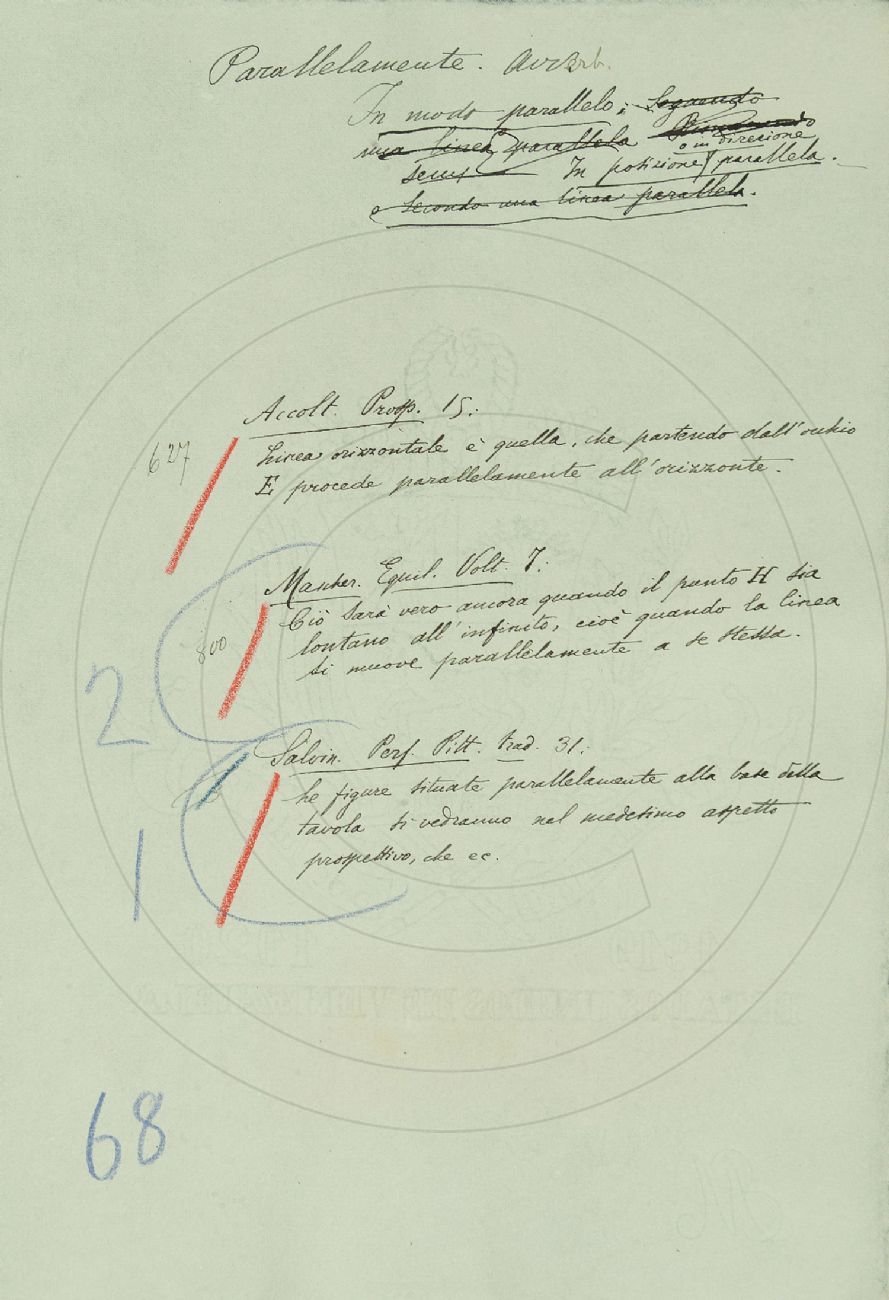 Parallelamente. Avverb.
In modo parallelo; Seguendo
una linea parallela
o in direzione
In posizione parallela.
o Secondo una linea parallela.
Accolt. Prosp. 15:
627
Linea orizzontale è quella, che partendo dall'occhio
E procede parallelamente all'orizzonte.
Mascher. Equil. Volt. 7:
Ciò sarà vero ancora quando il punto H sia
800
lontano all'infinito, cioè quando la linea
si muove parallelamente a se stessa.
2
Salvin. Perf. Pitt. trad. 31:
Le figure situate parallelamente alla base della
tavola si vedranno nel medesimo aspetto
1
prospettivo, che ec.
68